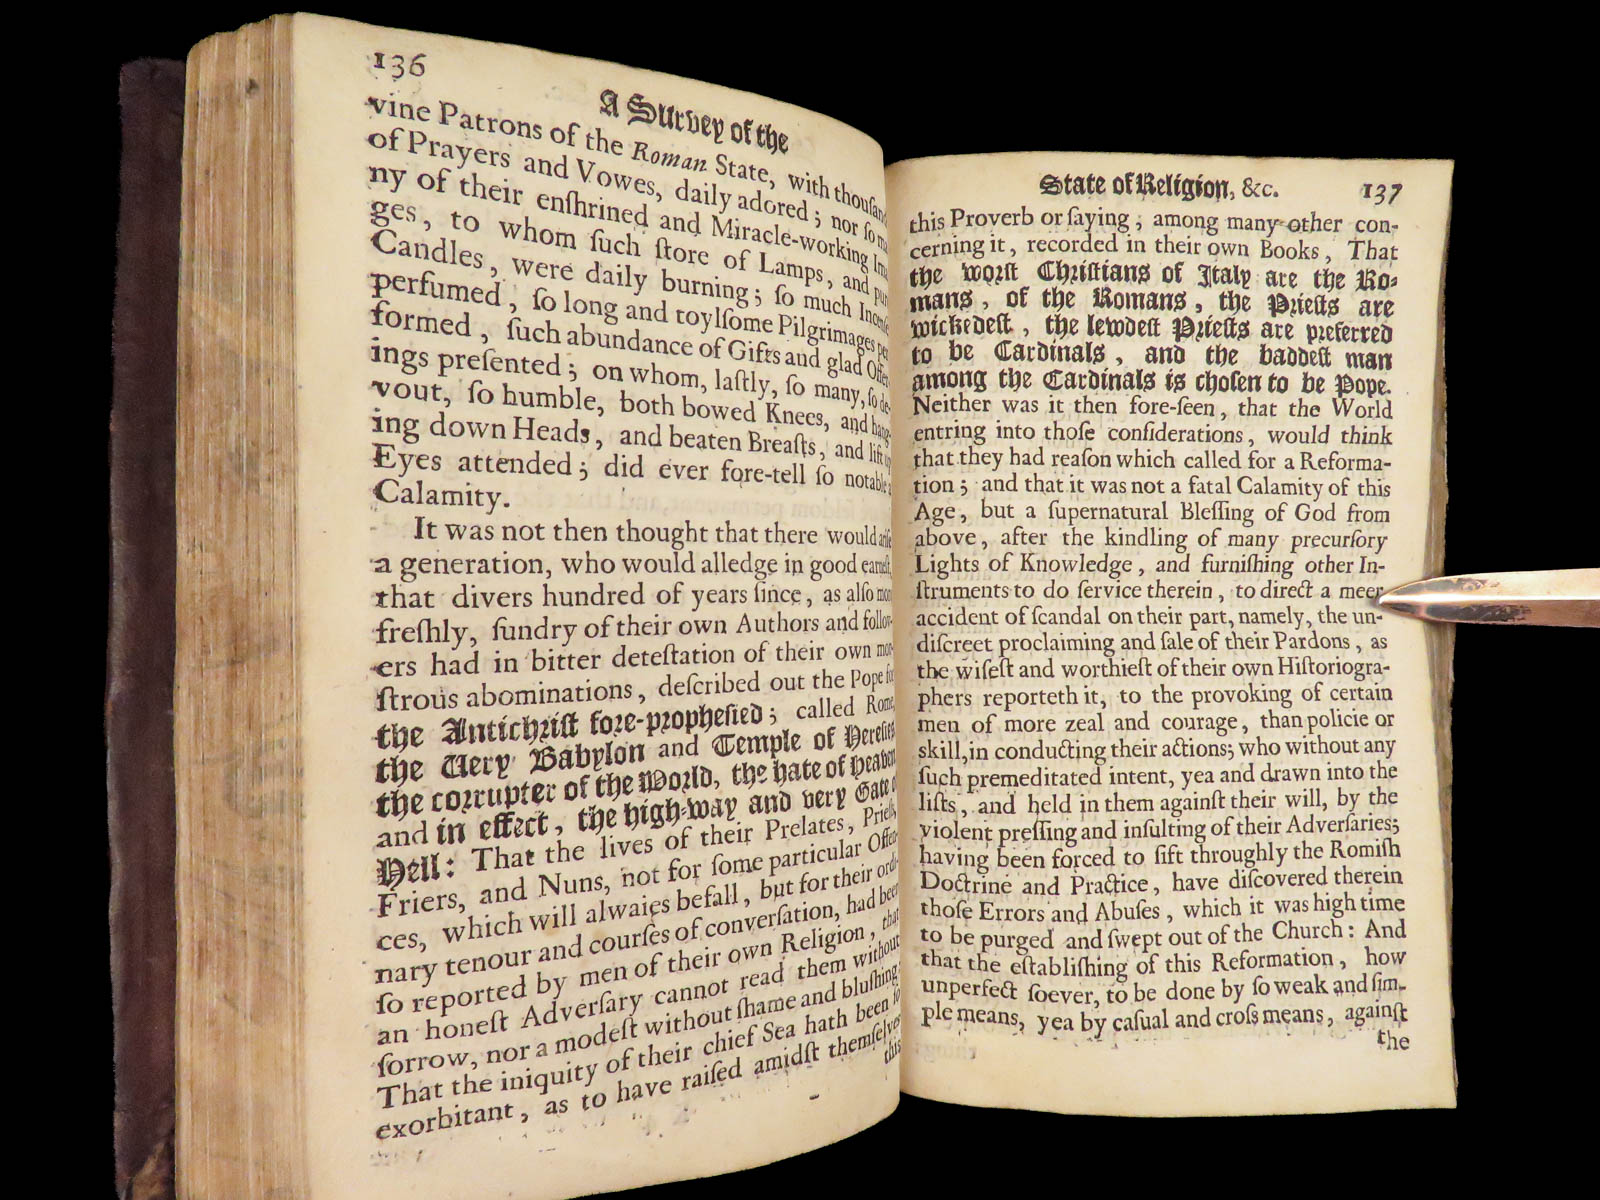 136
A Survey of the
vine Patrons of the Roman State, with thousands
of Prayers and Vowes, daily adored; nor so ma
ny of their enſhrined and Miracle-working Ima
ges, to whom ſuch ſtore of Lamps, and pure
Candles, were daily burning; ſo much Incenſe
perfumed, ſo long and toylſome Pilgrimages per
formed, ſuch abundance of Gifts and glad Offer
ings preſented; on whom, laſtly, ſo many, ſo de-
vout, ſo humble, both bowed Knees, and hang-
ing down Heads, and beaten Breaſts, and lift up
Eyes attended; did ever fore-tell ſo notable a
Calamity.
It was not then thought that there would ariſe
a generation, who would alledge in good earneſt,
that divers hundred of years ſince, as alſo more
freſhly, ſundry of their own Authors and follow-
ers had in bitter deteſtation of their own mon-
ſtrous abominations, deſcribed out the Pope for
the Antichriſt fore-propheſied; called Rome,
the Very Babylon and Temple of Hereſies
the corrupter of the World, the hate of Heaven
and in effect, the high-way and very Gate of
Hell: That the lives of their Prelates, Prieſts,
Friers, and Nuns, not for ſome particular Offen-
ces, which will alwaies befall, but for their ordi-
nary tenour and courſes of converſation, had been
ſo reported by men of their own Religion, that
an honeſt Adverſary cannot read them without
ſorrow, nor a modeſt without ſhame and bluſhing:
That the iniquity of their chief Sea hath been ſo
exorbitant, as to have raiſed amidſt themſelves
this
State of Religion, &c. 137
this Proverb or ſaying, among many other con-
cerning it, recorded in their own Books, That
the worſt Chriſtians of Italy are the Ro-
mans, of the Romans, the Prieſts are
wickedeſt, the lewdeſt Prieſts are preferred
to be Cardinals, and the baddeſt man
among the Cardinals is choſen to be Pope.
Neither was it then fore-ſeen, that the World
entring into thoſe conſiderations, would think
that they had reaſon which called for a Reforma-
tion; and that it was not a fatal Calamity of this
Age, but a ſupernatural Bleſſing of God from
above, after the kindling of many precurſory
Lights of Knowledge, and furniſhing other In-
ſtruments to do ſervice therein, to direct a meer
accident of ſcandal on their part, namely, the un-
diſcreet proclaiming and ſale of their Pardons, as
the wiſeſt and worthieſt of their own Hiſtoriogra-
phers reporteth it, to the provoking of certain
men of more zeal and courage, than policie or
skill, in conducting their actions; who without any
ſuch premeditated intent, yea and drawn into the
liſts, and held in them againſt their will, by the
violent preſſing and inſulting of their Adverſaries;
having been forced to ſift throughly the Romiſh
Doctrine and Practice, have diſcovered therein
thoſe Errors and Abuſes, which it was high time
to be purged and ſwept out of the Church: And
that the eſtabliſhing of this Reformation, how
unperfect ſoever, to be done by ſo weak and ſim-
ple means, yea by caſual and croſs means, againſt
the